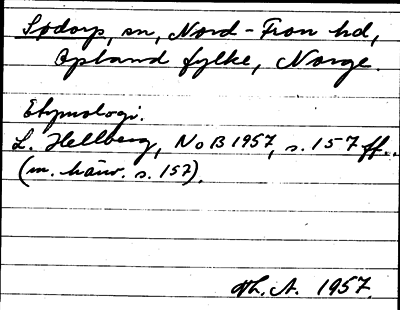 Sødorp, sn, Nord-Fron hd,
Opland fylke, Norge.
Etymologi.
L. Hellberg, NoB 1957, s. 157 ff.
(m. hänv. s. 157).
Th. A. 1957.